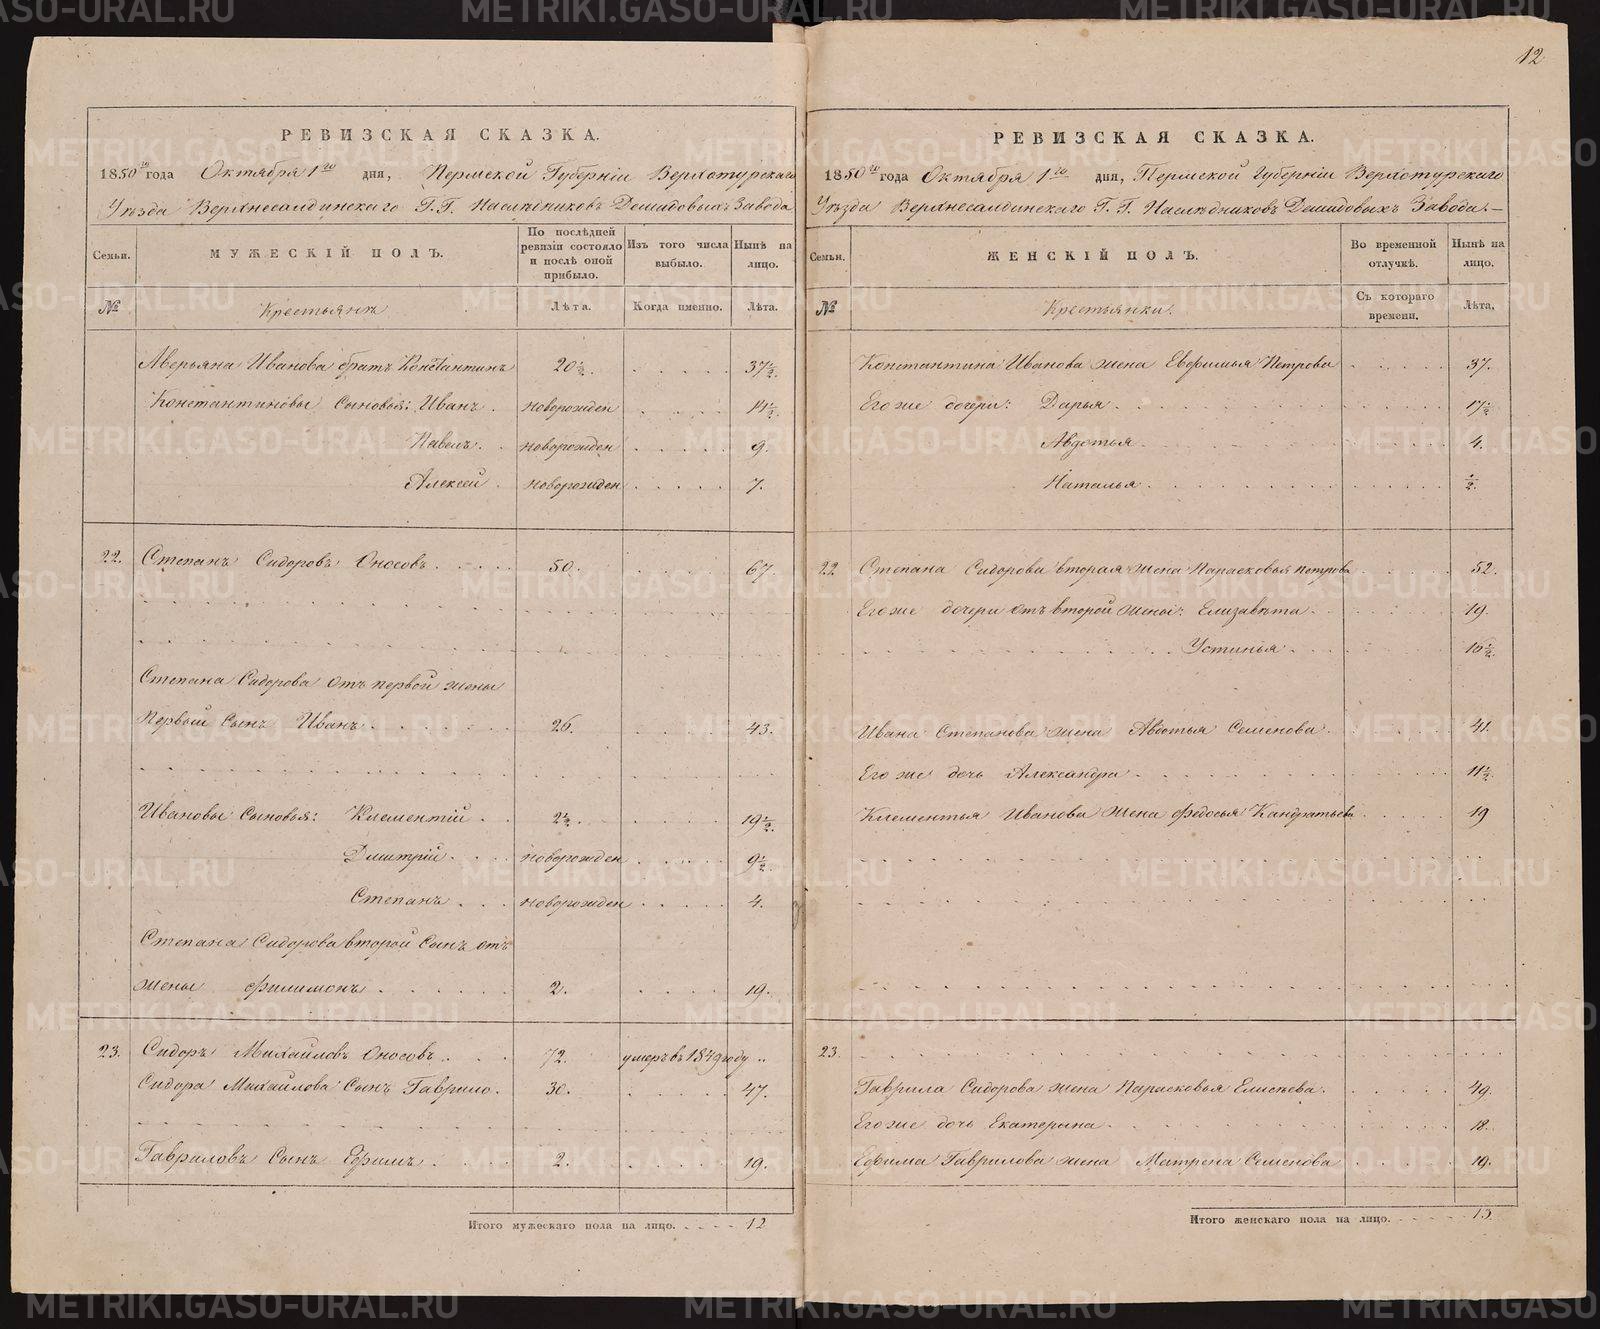 12
РЕВИЗСКАЯ СКАЗКА.
1850го года Октября 1го дня, Пермской Губернiи Верхотурскаго
Уѣзда Верхнесалдинскаго Г.Г. Наслѣдниковъ Демидовыхъ Завода
Семьи.
МУЖЕСКIЙ ПОЛЪ.
По послѣдней ревизiи состояло и послѣ оной прибыло.
Изъ того числа выбыло.
Нынѣ на лицо.
№
Крестьянъ
Лѣта.
Когда именно.
Лѣта.
Аверьяна Иванова братъ Константинъ 20½. 37½.
Константиновы Сыновья: Иванъ. новорожден 14½.
Павелъ. новорожден 9.
Алексей. новорожден 7.
22. Степанъ Сидоровъ Оносовъ. 50. 67.
Степана Сидорова отъ первой жены
Первый Сынъ Иванъ. 26. 43.
Ивановы Сыновья: Клементiй. 2½. 19½.
Дмитрiй. новорожден 9½.
Степанъ. новорожден 4.
Степана Сидорова второй Сынъ отъ
жены Филимонъ. 2. 19.
23. Сидоръ Михайловъ Оносовъ. 72. умеръ въ 1849 году
Сидора Михайлова Сынъ Гаврило. 30. 47.
Гавриловъ Сынъ Ефимъ. 2. 19.
Итого мужескаго пола на лицо. 12
РЕВИЗСКАЯ СКАЗКА.
1850го года Октября 1го дня, Пермской Губернiи Верхотурскаго
Уѣзда Верхнесалдинскаго Г.Г. Наслѣдниковъ Демидовыхъ Завода.—
Семьи.
ЖЕНСКIЙ ПОЛЪ.
Во временной отлучкѣ.
Нынѣ на лицо.
№
Крестьянки.
Съ котораго времени.
Лѣта.
Константина Иванова жена Евфимья Петрова 37.
Его же дочери: Дарья. 17½
Авдотья. 4.
Наталья. ½.
22 Степана Сидорова вторая жена Парасковья Петрова 52.
Его же дочери отъ второй жены: Елизавѣта. 19.
Устинья. 16½.
Ивана Степанова жена Авдотья Семенова. 41.
Его же дочь Александра. 11½.
Клементья Иванова жена Федосья Кандратьева 19
23.
Гаврила Сидорова жена Парасковья Елисѣева. 49.
Его же дочь Екатерина. 18.
Ефима Гаврилова жена Матрена Семенова 19.
Итого женскаго пола на лицо. 13.
METRIKI.GASO-URAL.RU